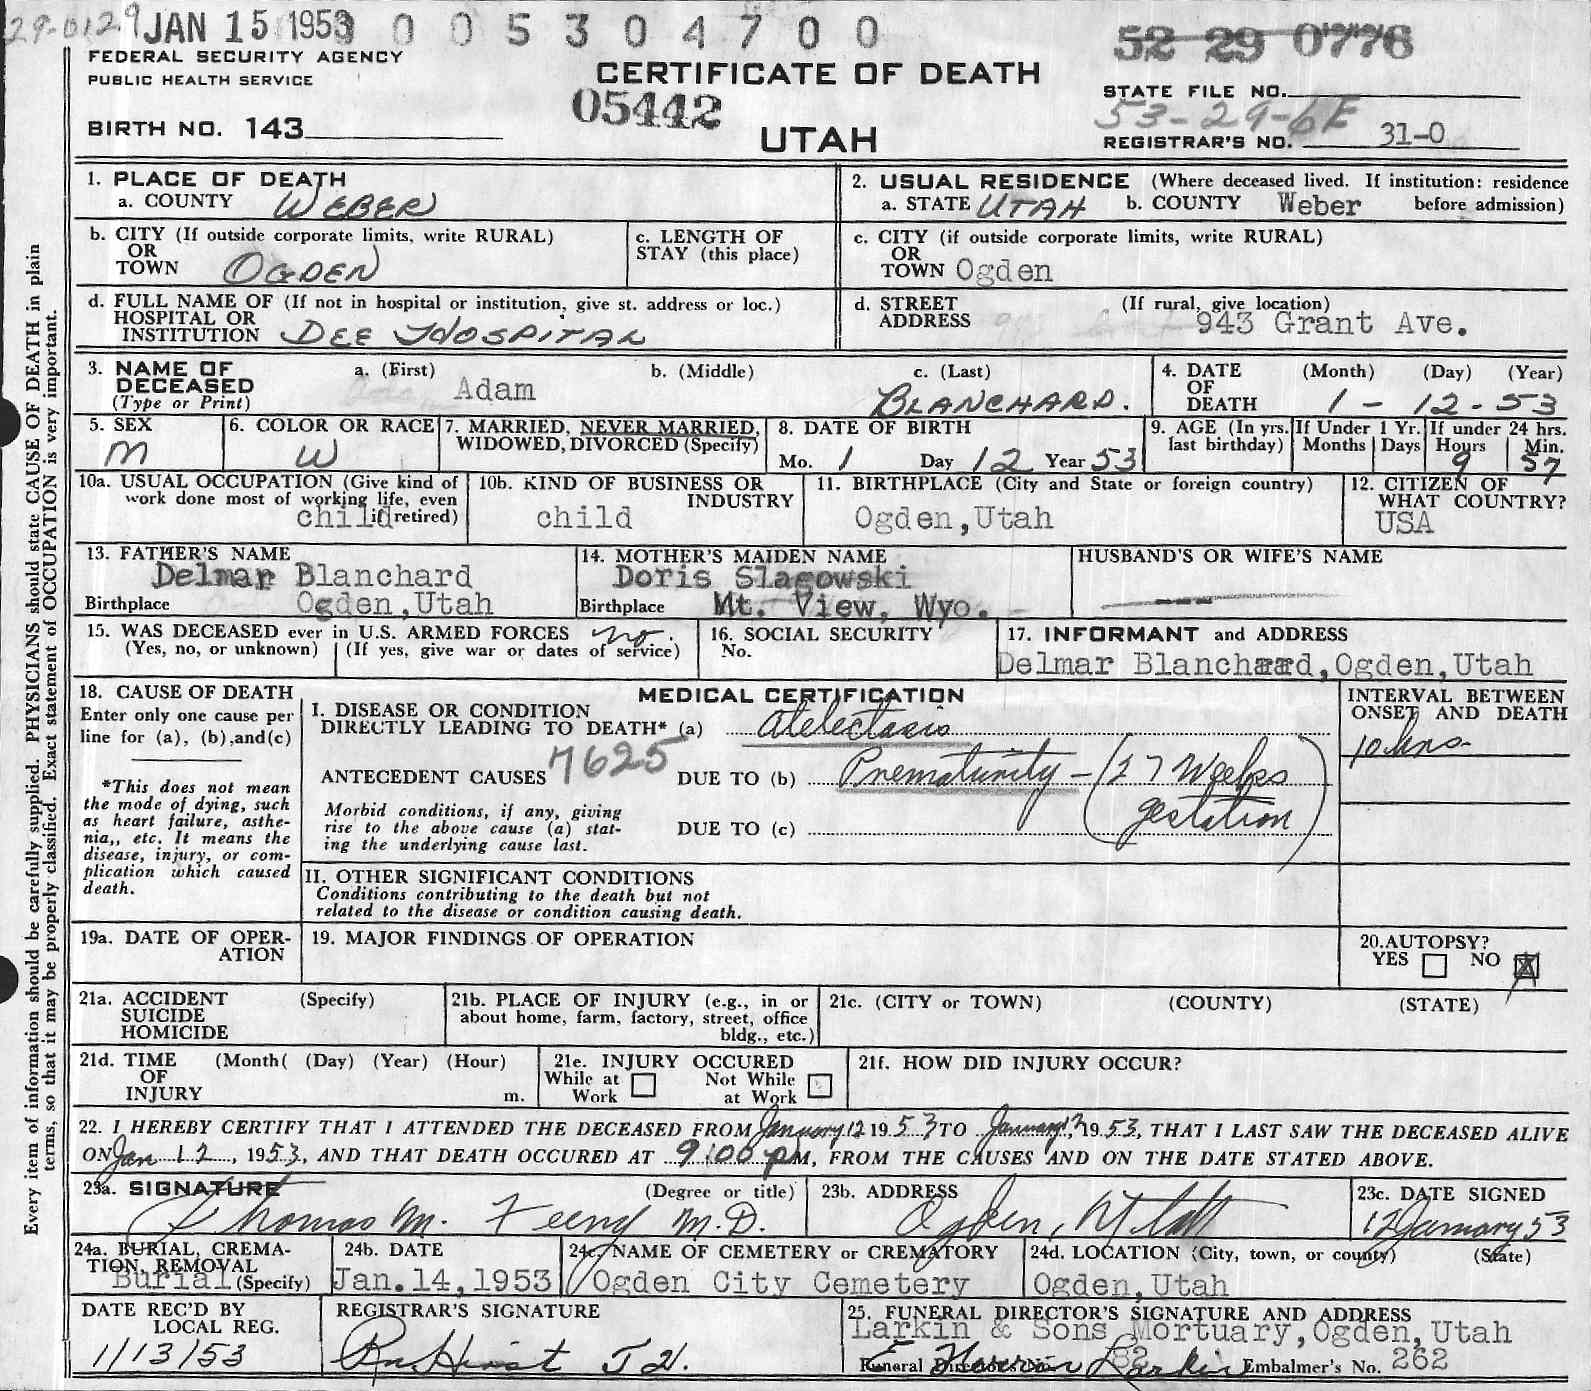 29-0129 JAN 15 1953 0 0 5 3 0 4 7 0 0 52 29 0776
FEDERAL SECURITY AGENCY
PUBLIC HEALTH SERVICE
CERTIFICATE OF DEATH
STATE FILE NO.
05442
53-29-6E
BIRTH NO. 143
UTAH
REGISTRAR'S NO. 31-0
Every item of information should be carefully supplied. PHYSICIANS should state CAUSE OF DEATH in plain
terms, so that it may be properly classified. Exact statement of OCCUPATION is very important.
1. PLACE OF DEATH
a. COUNTY WEBER
2. USUAL RESIDENCE (Where deceased lived. If institution: residence
a. STATE UTAH b. COUNTY Weber before admission)
b. CITY (If outside corporate limits, write RURAL)
OR
TOWN OGDEN
c. LENGTH OF
STAY (this place)
c. CITY (if outside corporate limits, write RURAL)
OR
TOWN Ogden
d. FULL NAME OF (If not in hospital or institution, give st. address or loc.)
HOSPITAL OR
INSTITUTION DEE HOSPITAL
d. STREET (If rural, give location)
ADDRESS 943 Grant Ave.
3. NAME OF a. (First) b. (Middle) c. (Last)
DECEASED Adam BLANCHARD.
(Type or Print)
4. DATE (Month) (Day) (Year)
OF
DEATH 1 - 12 - 53
5. SEX
M
6. COLOR OR RACE
W
7. MARRIED, NEVER MARRIED,
WIDOWED, DIVORCED (Specify)
8. DATE OF BIRTH
Mo. 1 Day 12 Year 53
9. AGE (In yrs.
last birthday)
If Under 1 Yr.
Months Days
If under 24 hrs.
Hours Min.
9 57
10a. USUAL OCCUPATION (Give kind of
work done most of working life, even
child if retired)
10b. KIND OF BUSINESS OR
INDUSTRY
child
11. BIRTHPLACE (City and State or foreign country)
Ogden,Utah
12. CITIZEN OF
WHAT COUNTRY?
USA
13. FATHER'S NAME
Delmar Blanchard
Birthplace Ogden,Utah
14. MOTHER'S MAIDEN NAME
Doris Slagowski
Birthplace Mt. View, Wyo.
HUSBAND'S OR WIFE'S NAME
15. WAS DECEASED ever in U.S. ARMED FORCES no.
(Yes, no, or unknown) (If yes, give war or dates of service)
16. SOCIAL SECURITY
No.
17. INFORMANT and ADDRESS
Delmar Blanchaard,Ogden,Utah
18. CAUSE OF DEATH
Enter only one cause per
line for (a), (b),and(c)
*This does not mean
the mode of dying, such
as heart failure, asthe-
nia,, etc. It means the
disease, injury, or com-
plication which caused
death.
MEDICAL CERTIFICATION
I. DISEASE OR CONDITION
DIRECTLY LEADING TO DEATH* (a) Atelectasis
ANTECEDENT CAUSES 7625 DUE TO (b) Prematurity - (27 Weeks
gestation)
Morbid conditions, if any, giving
rise to the above cause (a) stat-
ing the underlying cause last.
DUE TO (c)
INTERVAL BETWEEN
ONSET AND DEATH
10 hrs.
II. OTHER SIGNIFICANT CONDITIONS
Conditions contributing to the death but not
related to the disease or condition causing death.
19a. DATE OF OPER-
ATION
19. MAJOR FINDINGS OF OPERATION
20.AUTOPSY?
YES NO X
21a. ACCIDENT (Specify)
SUICIDE
HOMICIDE
21b. PLACE OF INJURY (e.g., in or
about home, farm, factory, street, office
bldg., etc.)
21c. (CITY or TOWN) (COUNTY) (STATE)
21d. TIME (Month( (Day) (Year) (Hour)
OF
INJURY m.
21e. INJURY OCCURED
While at Not While
Work at Work
21f. HOW DID INJURY OCCUR?
22. I HEREBY CERTIFY THAT I ATTENDED THE DECEASED FROM January 12 1953 TO January 12, 1953, THAT I LAST SAW THE DECEASED ALIVE
ON Jan 12, 1953, AND THAT DEATH OCCURED AT 9:00 pM, FROM THE CAUSES AND ON THE DATE STATED ABOVE.
23a. SIGNATURE (Degree or title)
Thomas M. Feeny M.D.
23b. ADDRESS
Ogden, Utah
23c. DATE SIGNED
12 January 53
24a. BURIAL, CREMA-
TION, REMOVAL
Burial (Specify)
24b. DATE
Jan.14,1953
24c. NAME OF CEMETERY or CREMATORY
Ogden City Cemetery
24d. LOCATION (City, town, or county) (State)
Ogden,Utah
DATE REC'D BY
LOCAL REG.
1/13/53
REGISTRAR'S SIGNATURE
25. FUNERAL DIRECTOR'S SIGNATURE AND ADDRESS
Larkin & Sons Mortuary,Ogden,Utah
Funeral Director's No. 82 Larkin Embalmer's No. 262